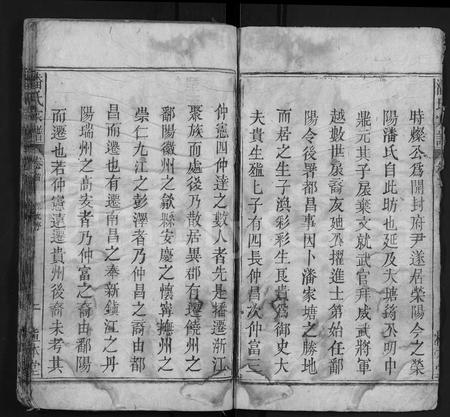 時燦公為開封府尹遂居滎陽今之滎
陽潘氏自此昉也延及大塘鏐公明中
鼎元其子扆棄文就武官拜威武將軍
越數世扆裔友公擢進士第始任鄱
陽令後署都昌事因卜潘家塘之勝地
而居之生子渙彩彩生長貴為御史大
夫貴生鎰鎰子有四長仲昌次仲富三
仲德四仲達之數人者先是播遷浙江
聚族而處後乃散居異郡有遷饒州之
鄱陽徽州之歙縣安慶之懷寧撫州之
崇仁九江之彭澤者乃仲昌之裔由都
昌而遷也有遷南昌之奉新鎮江之丹
陽瑞州之高安者乃仲富之裔由鄱陽
而遷也若仲德遠遷貴州後裔未考其
潘氏宗譜 卷首 二